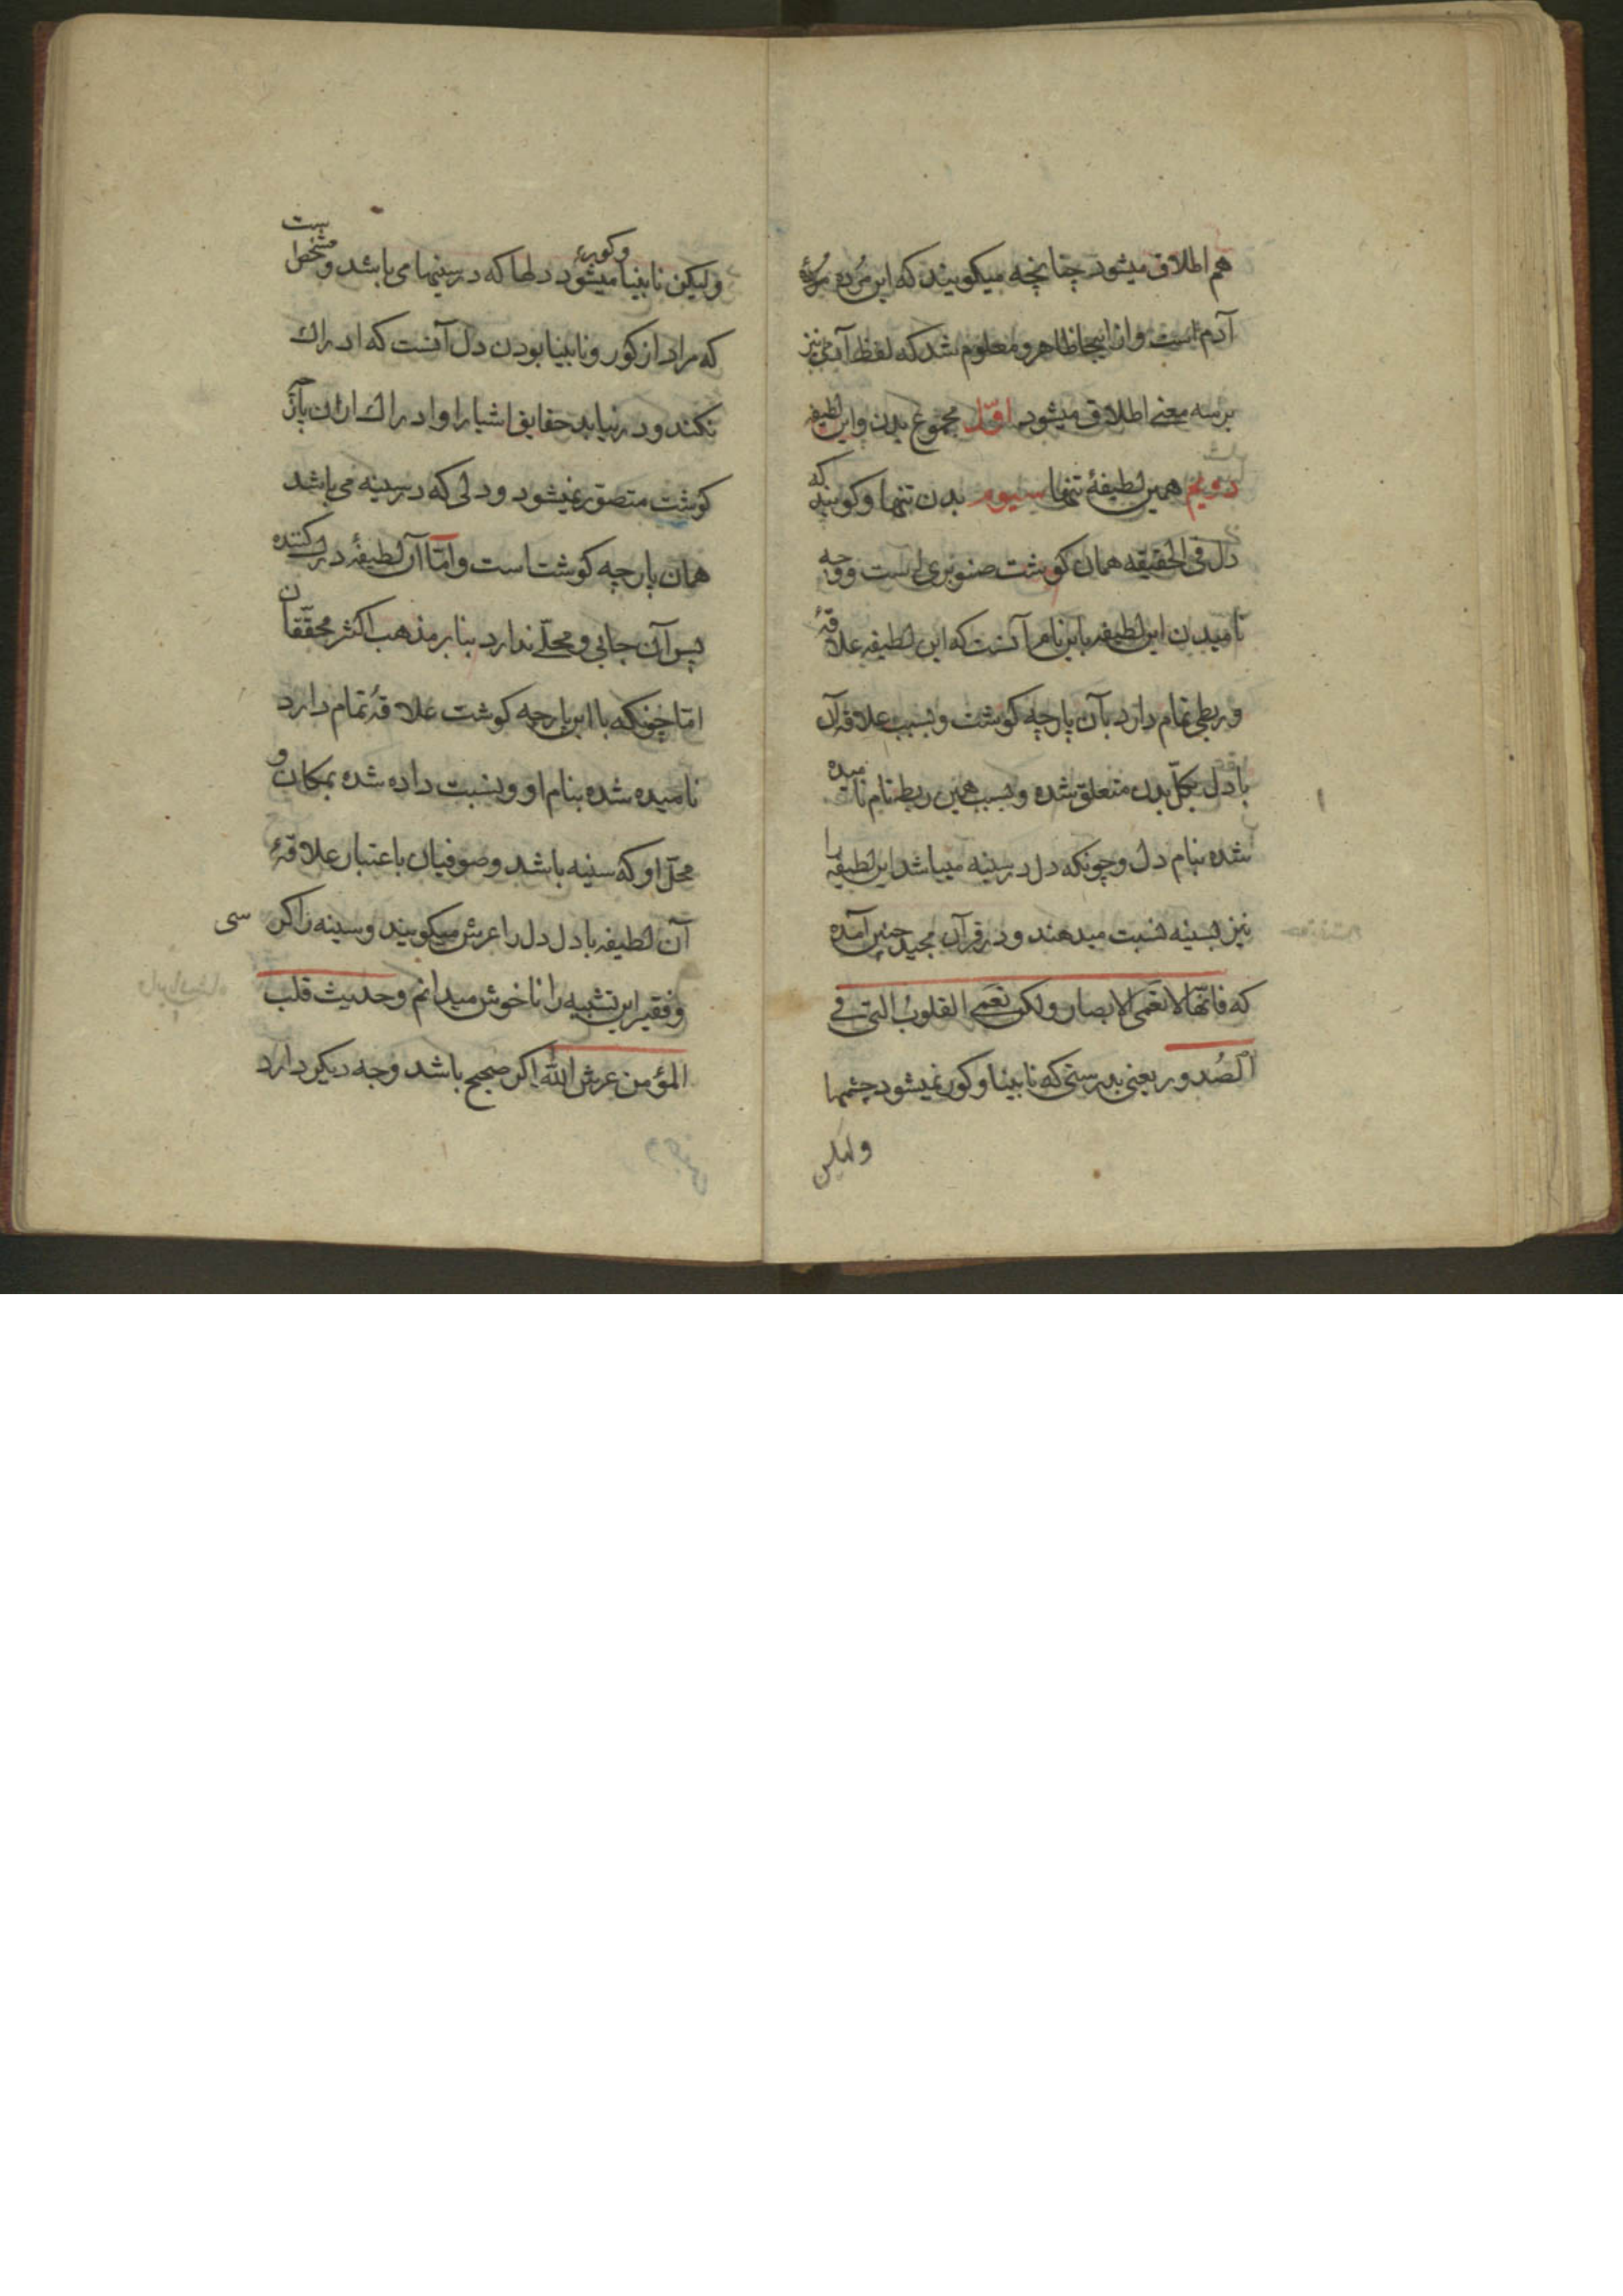 هم اطلاق میشود چنانچه میکویند که این مرده مردهٔ
آدم است و از اینجا ظاهر و معلوم شد که لفظ آدمی نیز
بر سه معنی اطلاق میشود اوّل مجموع بدن و این لطیفه
دویم همین لطیفهٔ تنها سیوم بدن تنها و کویند که
دل فی الحقیقه همان کوشت صنوبری است و وجه
نامیدن این لطیفه باین نام آنست که این لطیفه علاقهٔ
و ربطی تمام دارد بآن پارچه کوشت و بسبب علاقه آن
با دل بکلّ بدن متعلق شده و بسبب همین ربط نام نامیده
شده بنام دل و چونکه دل در سینه میباشد این لطیفه را
نیز بسینه نسبت میدهند و در قرآن مجید چنین آمده
که فانّها لا تعمی الابصار ولکن تعمی القلوب التی فی
الصُدور یعنی بدرستی که نابینا و کور نمیشود چشمها
ولیکن
ولیکن نابینا و کور میشود دلها که در سینها می باشد و مشخص است
که مراد از کور و نابینا بودن دل آنست که ادراک
نکند و در نیابد حقایق اشیا را و ادراک ازان پارٔ
کوشت متصوّر نمیشود و دلی که در سینه می باشد
همان پارچه کوشت است و امّا آن لطیفهٔ درک کننده
پس آن جایی و محلّی ندارد بنا بر مذهب اکثر محقّقان
امّا چونکه با این پارچه کوشت علاقهٔ تمام دارد
نامیده شده بنام او و نسبت داده شده بمکان و
محلّ او که سینه باشد و صوفیان باعتبار علاقهٔ
آن لطیفه با دل دل را عرش میکویند و سینه را کرسی
و فقیر این تشبیه را ناخوش میدانم و حدیث قلب
المؤمن عرش الله اکر صحیح باشد وجه دیکر دارد